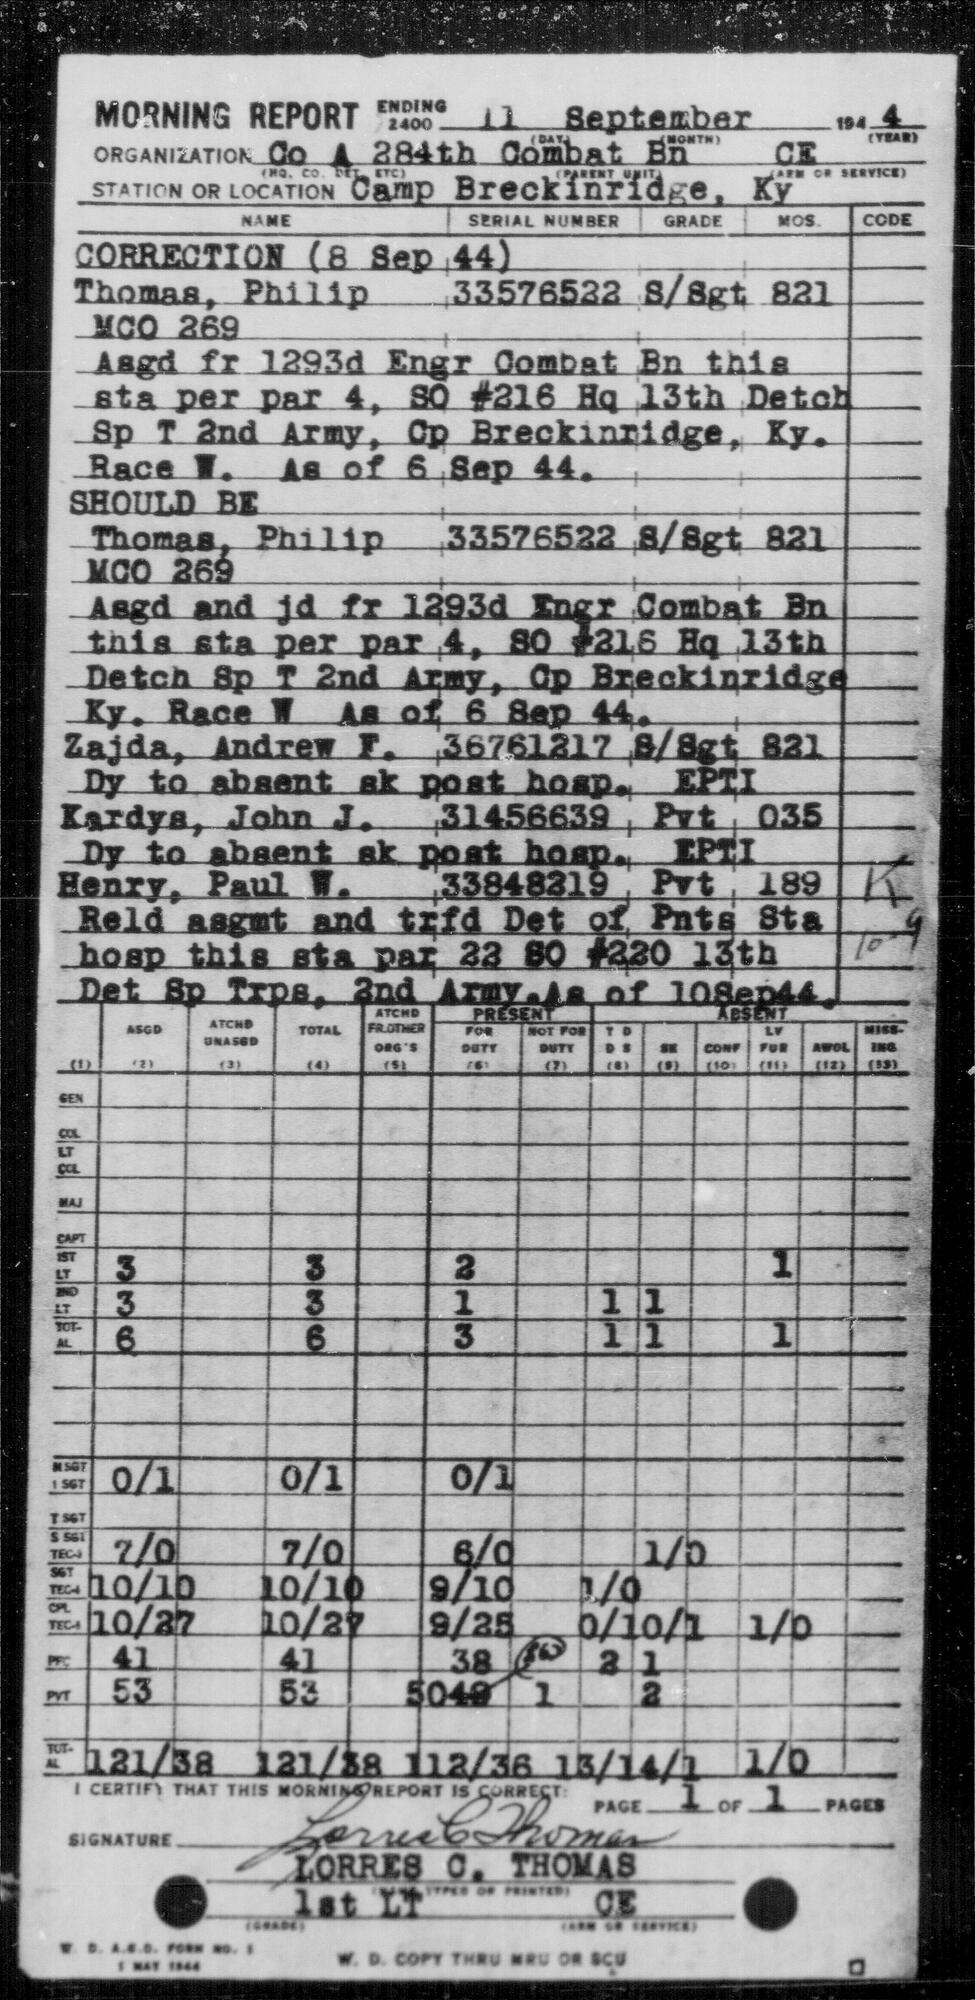 MORNING REPORT ENDING 2400 11 September 194 4
(DAY) (MONTH) (YEAR)
ORGANIZATION Co A 284th Combat Bn CE
(HQ. CO. DET. ETC) (PARENT UNIT) (ARM OR SERVICE)
STATION OR LOCATION Camp Breckinridge, Ky
NAME SERIAL NUMBER GRADE MOS. CODE
CORRECTION (8 Sep 44)
Thomas, Philip 33576522 S/Sgt 821
MCO 269
Asgd fr 1293d Engr Combat Bn this
sta per par 4, SO #216 Hq 13th Detch
Sp T 2nd Army, Cp Breckinridge, Ky.
Race W. As of 6 Sep 44.
SHOULD BE
Thomas, Philip 33576522 S/Sgt 821
MCO 269
Asgd and jd fr 1293d Engr Combat Bn
this sta per par 4, SO #216 Hq 13th
Detch Sp T 2nd Army, Cp Breckinridge
Ky. Race W As of 6 Sep 44.
Zajda, Andrew F. 36761217 S/Sgt 821
Dy to absent sk post hosp. EPTI
Kardys, John J. 31456639 Pvt 035
Dy to absent sk post hosp. EPTI
Henry, Paul W. 33848219 Pvt 189 K
Reld asgmt and trfd Det of Pnts Sta
hosp this sta par 22 SO #220 13th 10-9
Det Sp Trps, 2nd Army.As of 10Sep44.
PRESENT ABSENT
ASGD ATCHD UNASGD TOTAL ATCHD FR.OTHER ORG'S FOR DUTY NOT FOR DUTY T D D S SK CONF LV FUR AWOL MISS-ING
(1) (2) (3) (4) (5) (6) (7) (8) (9) (10) (11) (12) (13)
GEN
COL
LT COL
MAJ
CAPT
1ST LT 3 3 2 1
2ND LT 3 3 1 1 1
TOT-AL 6 6 3 1 1 1
M SGT 1 SGT 0/1 0/1 0/1
T SGT
S SGT TEC-3 7/0 7/0 6/0 1/0
SGT TEC-4 10/10 10/10 9/10 1/0
CPL TEC-5 10/27 10/27 9/25 0/10/1 1/0
PFC 41 41 38 2 1
PVT 53 53 5049 1 2
TOT-AL 121/38 121/38 112/36 13/14/1 1/0
I CERTIFY THAT THIS MORNING REPORT IS CORRECT:
PAGE 1 OF 1 PAGES
SIGNATURE Lorres C Thomas
LORRES C. THOMAS
(NAME TYPED OR PRINTED)
1st LT CE
(GRADE) (ARM OR SERVICE)
W. D. A.G.O. FORM NO. 1
1 MAY 1944
W. D. COPY THRU MRU OR SCU